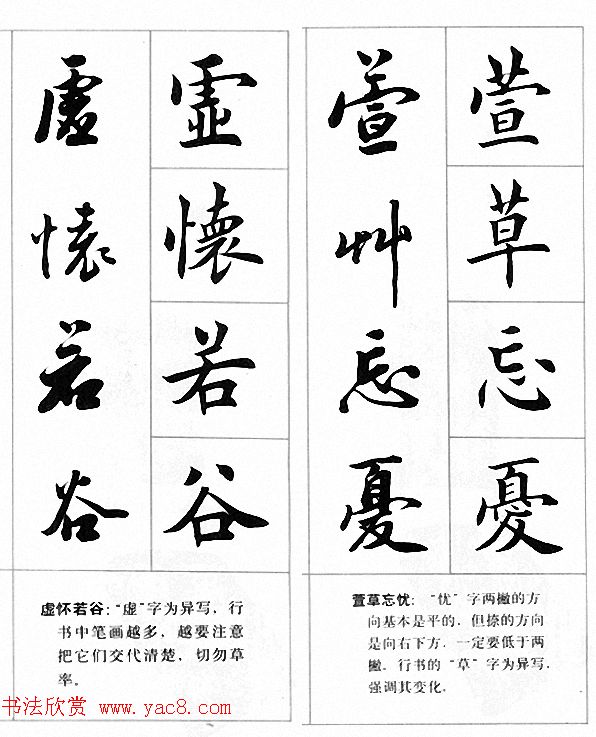 萱草忘憂
萱艸忘憂
虛懷若谷
虛懷若谷
萱草忘忧：“忧”字两撇的方
向基本是平的，但捺的方向
是向右下方，一定要低于两
撇。行书的“草”字为异写，
强调其变化。
虚怀若谷：“虚”字为异写，行
书中笔画越多，越要注意
把它们交代清楚，切勿草
率。
书法欣赏 www.yac8.com